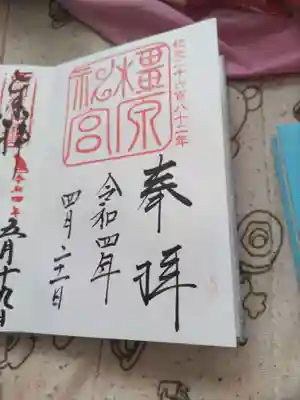 紀元二千六百八十二年
橿原
神宮
奉拝
令和四年
四月二十一日
五月十九日